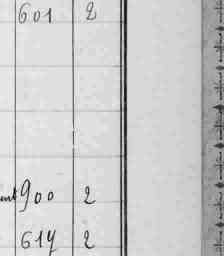 601 2
900 2
617 2